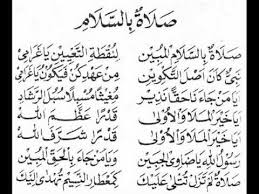 صَلَاةٌ بِالسَّلَامِ
صَلَاةٌ بِالسَّلَامِ الْمُبِيْنِ لِنُقْطَةِ التَّعْيِيْنِ يَا غَرَامِيْ
نَبِيْ كَانَ أَصْلَ التَّكْوِيْنِ مِنْ عَهْدِ كُنْ فَيَكُوْنُ يَا غَرَامِيْ
أَيَا مَنْ جَاءَنَا حَقًّا نَذِيْر مُغِيْثًا مُسْبِلًا سُبُلَ الرَّشَادِ
أَيَا خَيْرَ الْمَلَا وَالْأُولَى قَدْرًا عَظَّمَ اللهُ
يَا خَيْرَ الْمَلَا وَالْأُولَى قَدْرًا شَرَّفَ اللهُ
رَسُولَ اللهِ يَا ضَاوِى الْجَبِيْنِ وَيَا مَنْ جَاءَ بِالْحَقِّ الْمُبِيْنِ
صَلَاةٌ لَمْ تَزَلْ تُتْلَى عَلَيْكَ كَمِعْطَارِ النَّسِيْمِ تُهْدَى إِلَيْكَ